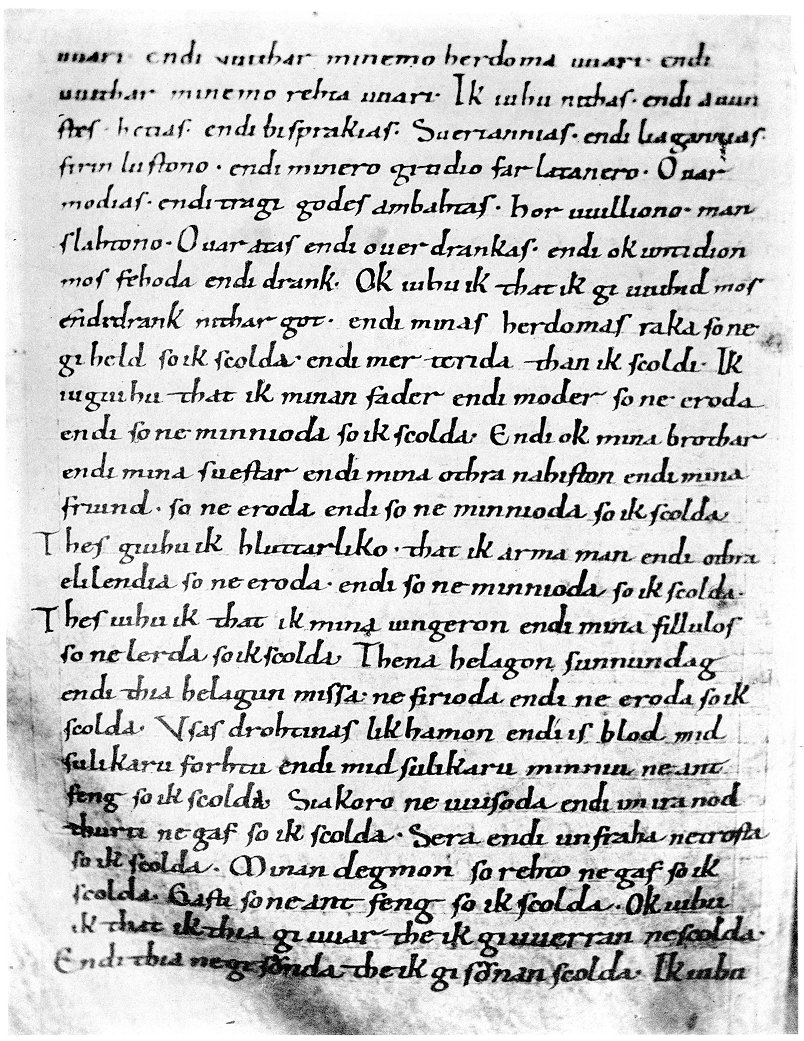 uuari· endi uuithar minemo herdoma uuari· endi
uuithar minemo rehta uuari· Ik iuhu nithas· endi auun
stes· hetias· endi bisprakias· Sueriannias· endi liagannias·
firinlustono· endi minero gitidio farlatanero· Ouar
modias· endi tragi godes ambahtas· hor uuilliono· man
slahtono· Ouar atas endi ouerdrankas· endi ok untidion
mos fehoda endi drank· Ok iuhu ik that ik giuuihid mos
endi drank nithar got· endi minas herdomas raka so ne
giheld so ik scolda· endi mer terida than ik scoldi· Ik
iugiuhu that ik minan fader endi moder so ne eroda
endi so ne minnioda so ik scolda· Endi ok mina brothar
endi mina suestar endi mina othra nahiston endi mina
friund· so ne eroda endi so ne minnioda so ik scolda
Thes giuhu ik hluttarliko· that ik arma man endi othra
elilendia so ne eroda· endi so ne minnioda so ik scolda·
Thes iuhu ik that ik mina iungeron endi mina fillulos
so ne lerda so ik scolda Thena helagon sunnundag
endi thia helagun missa· ne firioda endi ne eroda so ik
scolda· Vsas drohtinas likhamon endi is blod mid
sulikaru forhtu endi mid sulikaru minniu ne ant
feng so ik scolda Siakoro ne uuisoda endi im ira nod
thurti ne gaf so ik scolda· Sera endi unfraha ne trosta
so ik scolda· Minan degmon so rehto ne gaf so ik
scolda· Gasti so ne ant feng so ik scolda· Ok iuhu
ik that ik thia giuuar the ik giuuerran ne scolda·
Endi thia ne gisonda the ik gisonan scolda· Ik iuhu